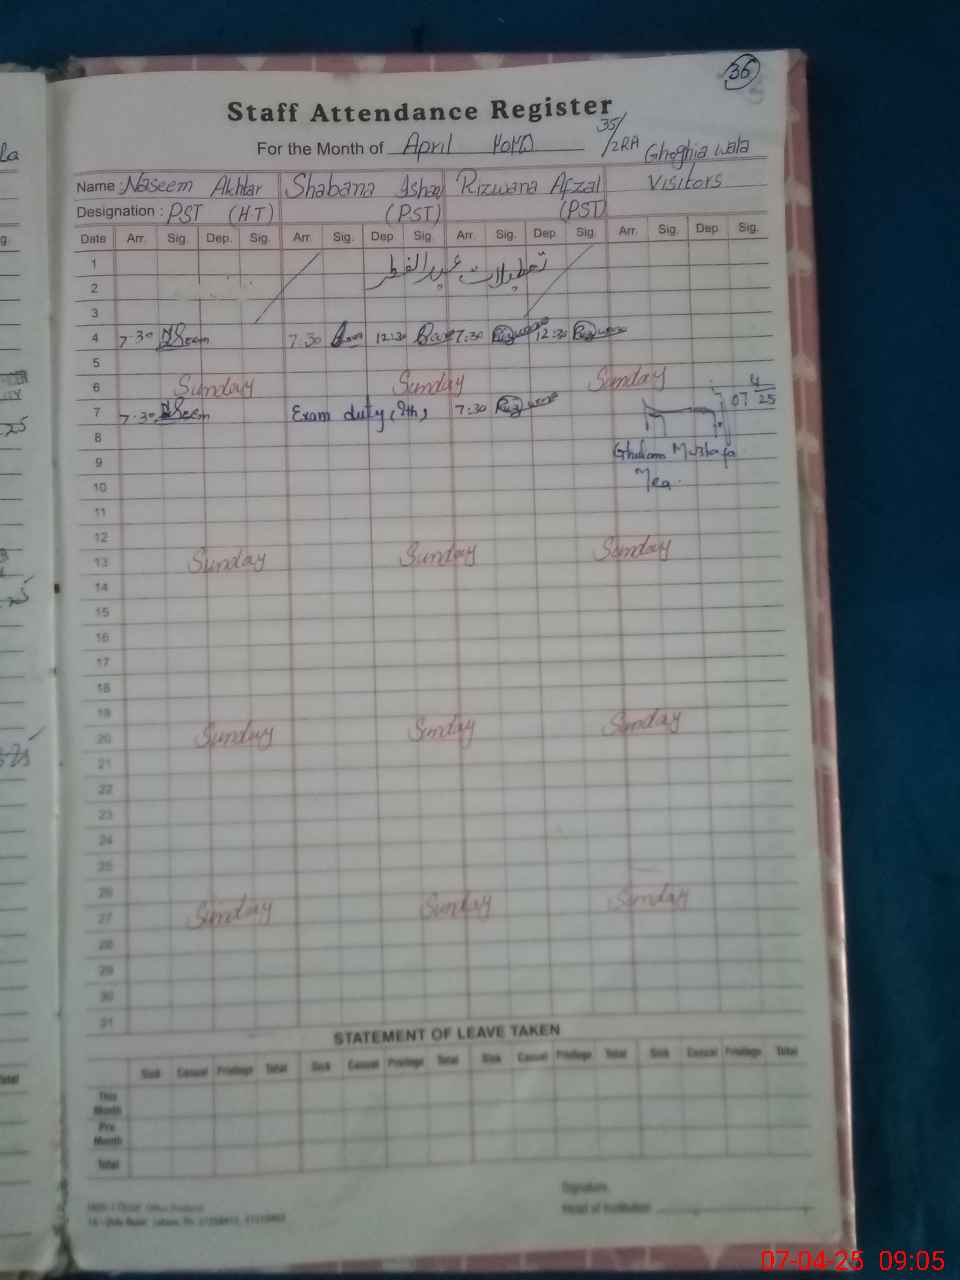 36
Staff Attendance Register
35/2RA Ghoghia wala
For the Month of April ۲۰۲۵
Name : Naseem Akhtar Shabana Ishaq Rizwana Afzal Visitors
Designation : PST (H.T) (PST) (PST)
Date Arr. Sig. Dep. Sig. Arr. Sig. Dep. Sig. Arr. Sig. Dep. Sig. Arr. Sig. Dep. Sig.
1 تعطیلات عید الفطر
2
3
4 7.30 7.30 12:30 7:30 12:30
5
6 Sunday Sunday Sunday
7 7.30 Exam duty (9th) 7:30 07 4/25
8
9 Ghulam Mustafa
10 Mea.
11
12
13 Sunday Sunday Sunday
14
15
16
17
18
19
20 Sunday Sunday Sunday
21
22
23
24
25
26
27 Sunday Sunday Sunday
28
29
30
31
STATEMENT OF LEAVE TAKEN
Sick Casual Privilege Total Sick Casual Privilege Total Sick Casual Privilege Total Sick Casual Privilege Total
This Month
Pre Month
Total
Signature
Head of Institution
07-04-25 09:05